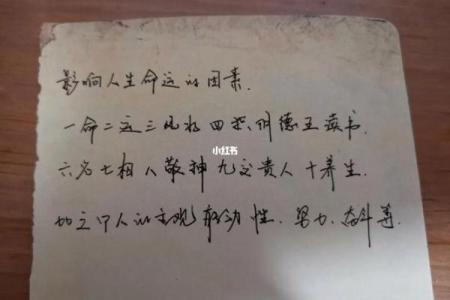 影响人生命运的因素.
一命二运三风水四积阴德五读书.
六名七相八敬神九交贵人十养生.
加之个人的主观能动性.努力.奋斗等.
小红书